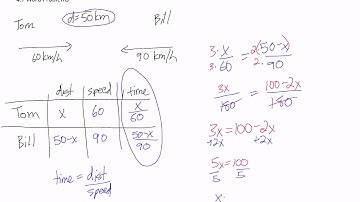 Tom d=50km Bill
60km/h 90 km/h
dist speed time
Tom x 60 x/60
Bill 50-x 90 50-x/90
time = dist/speed
3· x/3·60 = 2(50-x)/2·90
3x/180 = 100-2x/180
3x = 100-2x
+2x +2x
5x = 100
5 5
x